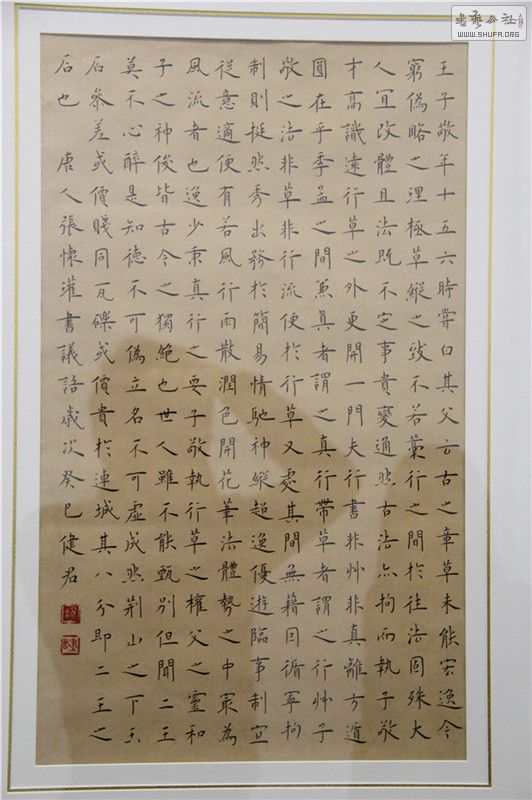 書藝公社
WWW.SHUFA.ORG
王子敬年十五六時嘗白其父云古之章草未能宏逸今
窮偽略之理極草縱之致不若藁行之間於往法固殊大
人宜改體且法既不定事貴變通然古法亦拘而執子敬
才高識遠行草之外更開一門夫行書非艸非真離方遁
圓在乎季孟之間兼真者謂之真行帶草者謂之行艸子
敬之法非草非行流便於行草又處其間無藉因循寧拘
制則挺然秀出務於簡易情馳神縱超逸優遊臨事制宜
從意適便有若風行雨散潤色開花筆法體勢之中寂為
風流者也逸少秉真行之要子敬執行草之權父之靈和
子之神俊皆古今之獨絶也世人雖不能甄別但聞二王
莫不心醉是知德不可偽立名不可虛成然荆山之下玉
石參差或價賤同瓦礫或價貴於連城其八分即二王之
石也 唐人張懷瓘書議語歲次癸巳健君